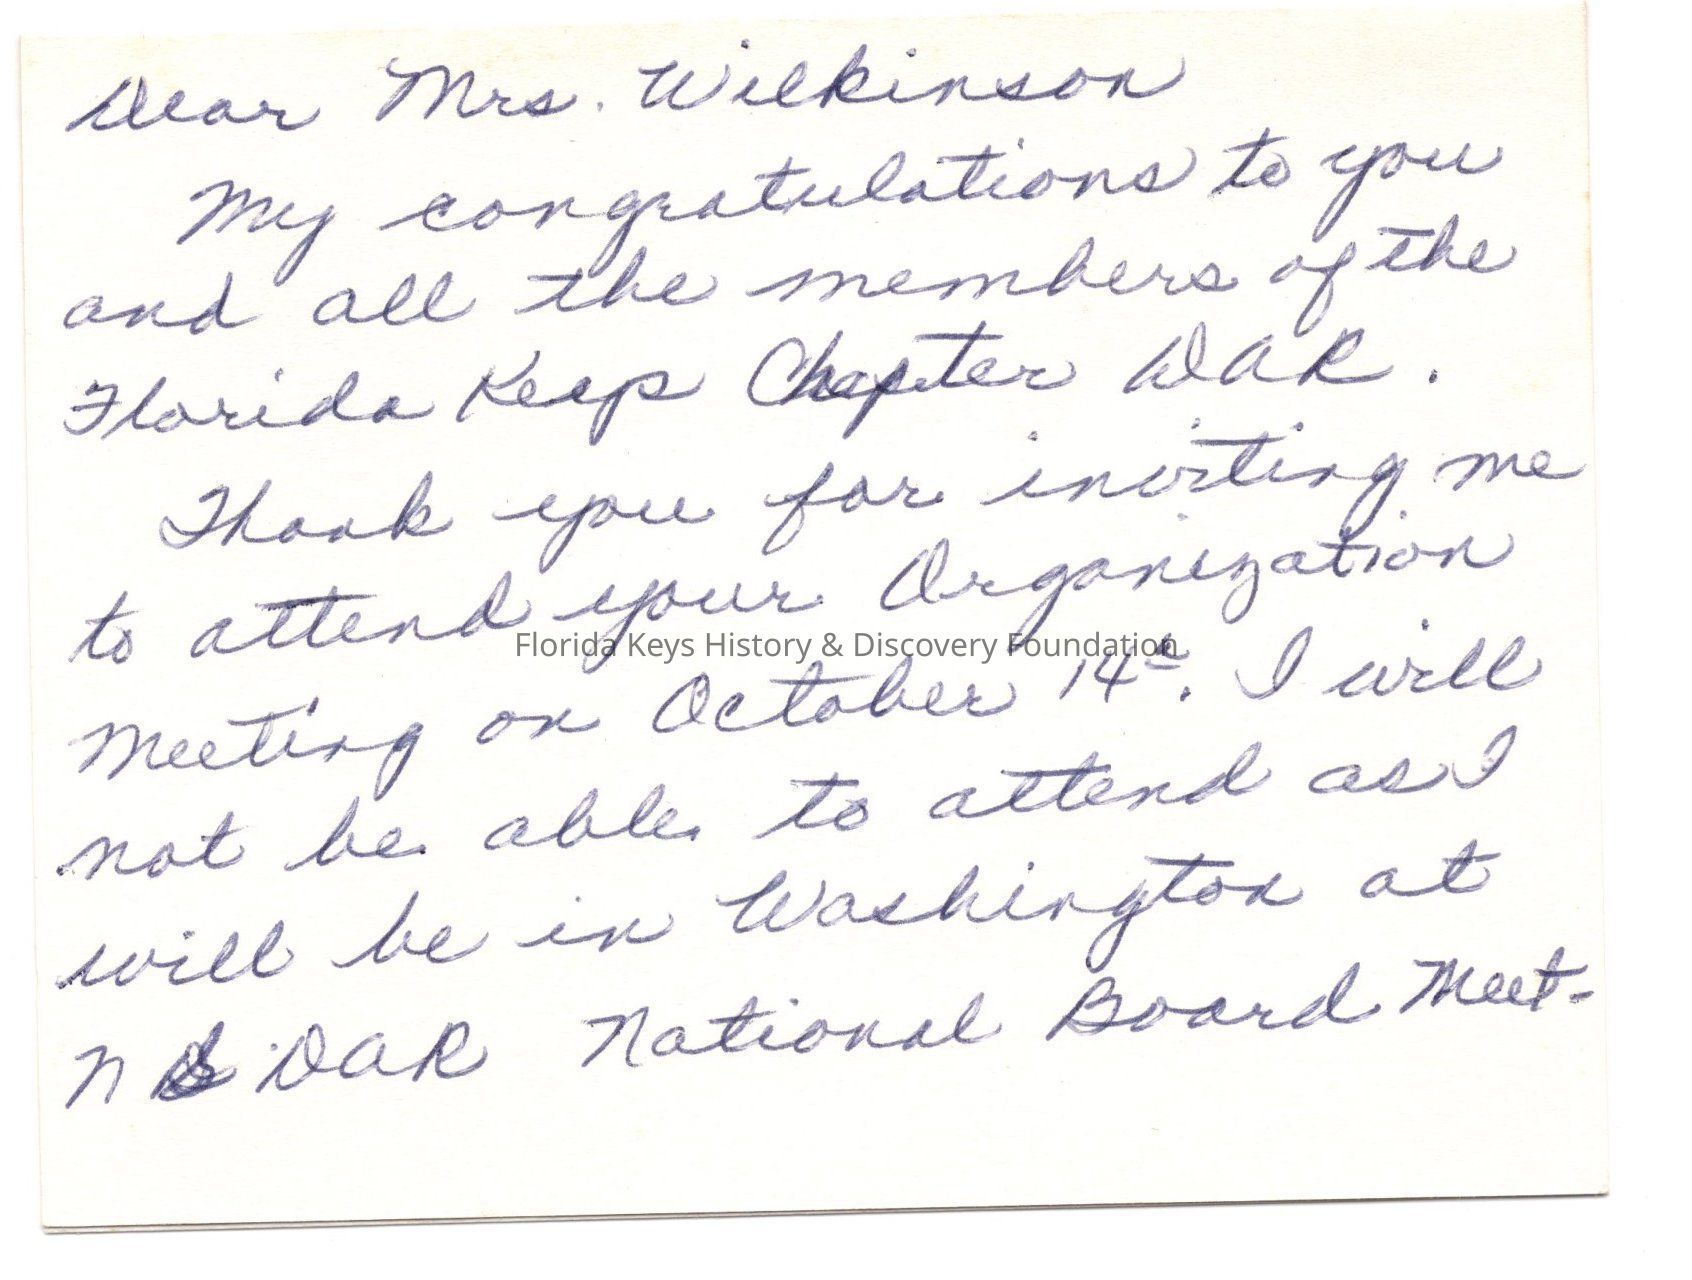 Dear Mrs. Wilkinson
My congratulations to you
and all the members of the
Florida Keys Chapter DAR.
Thank you for inviting me
to attend your Organization
Florida Keys History & Discovery Foundation
Meeting on October 14th. I will
not be able to attend as I
will be in Washington at
NSDAR National Board Meet-